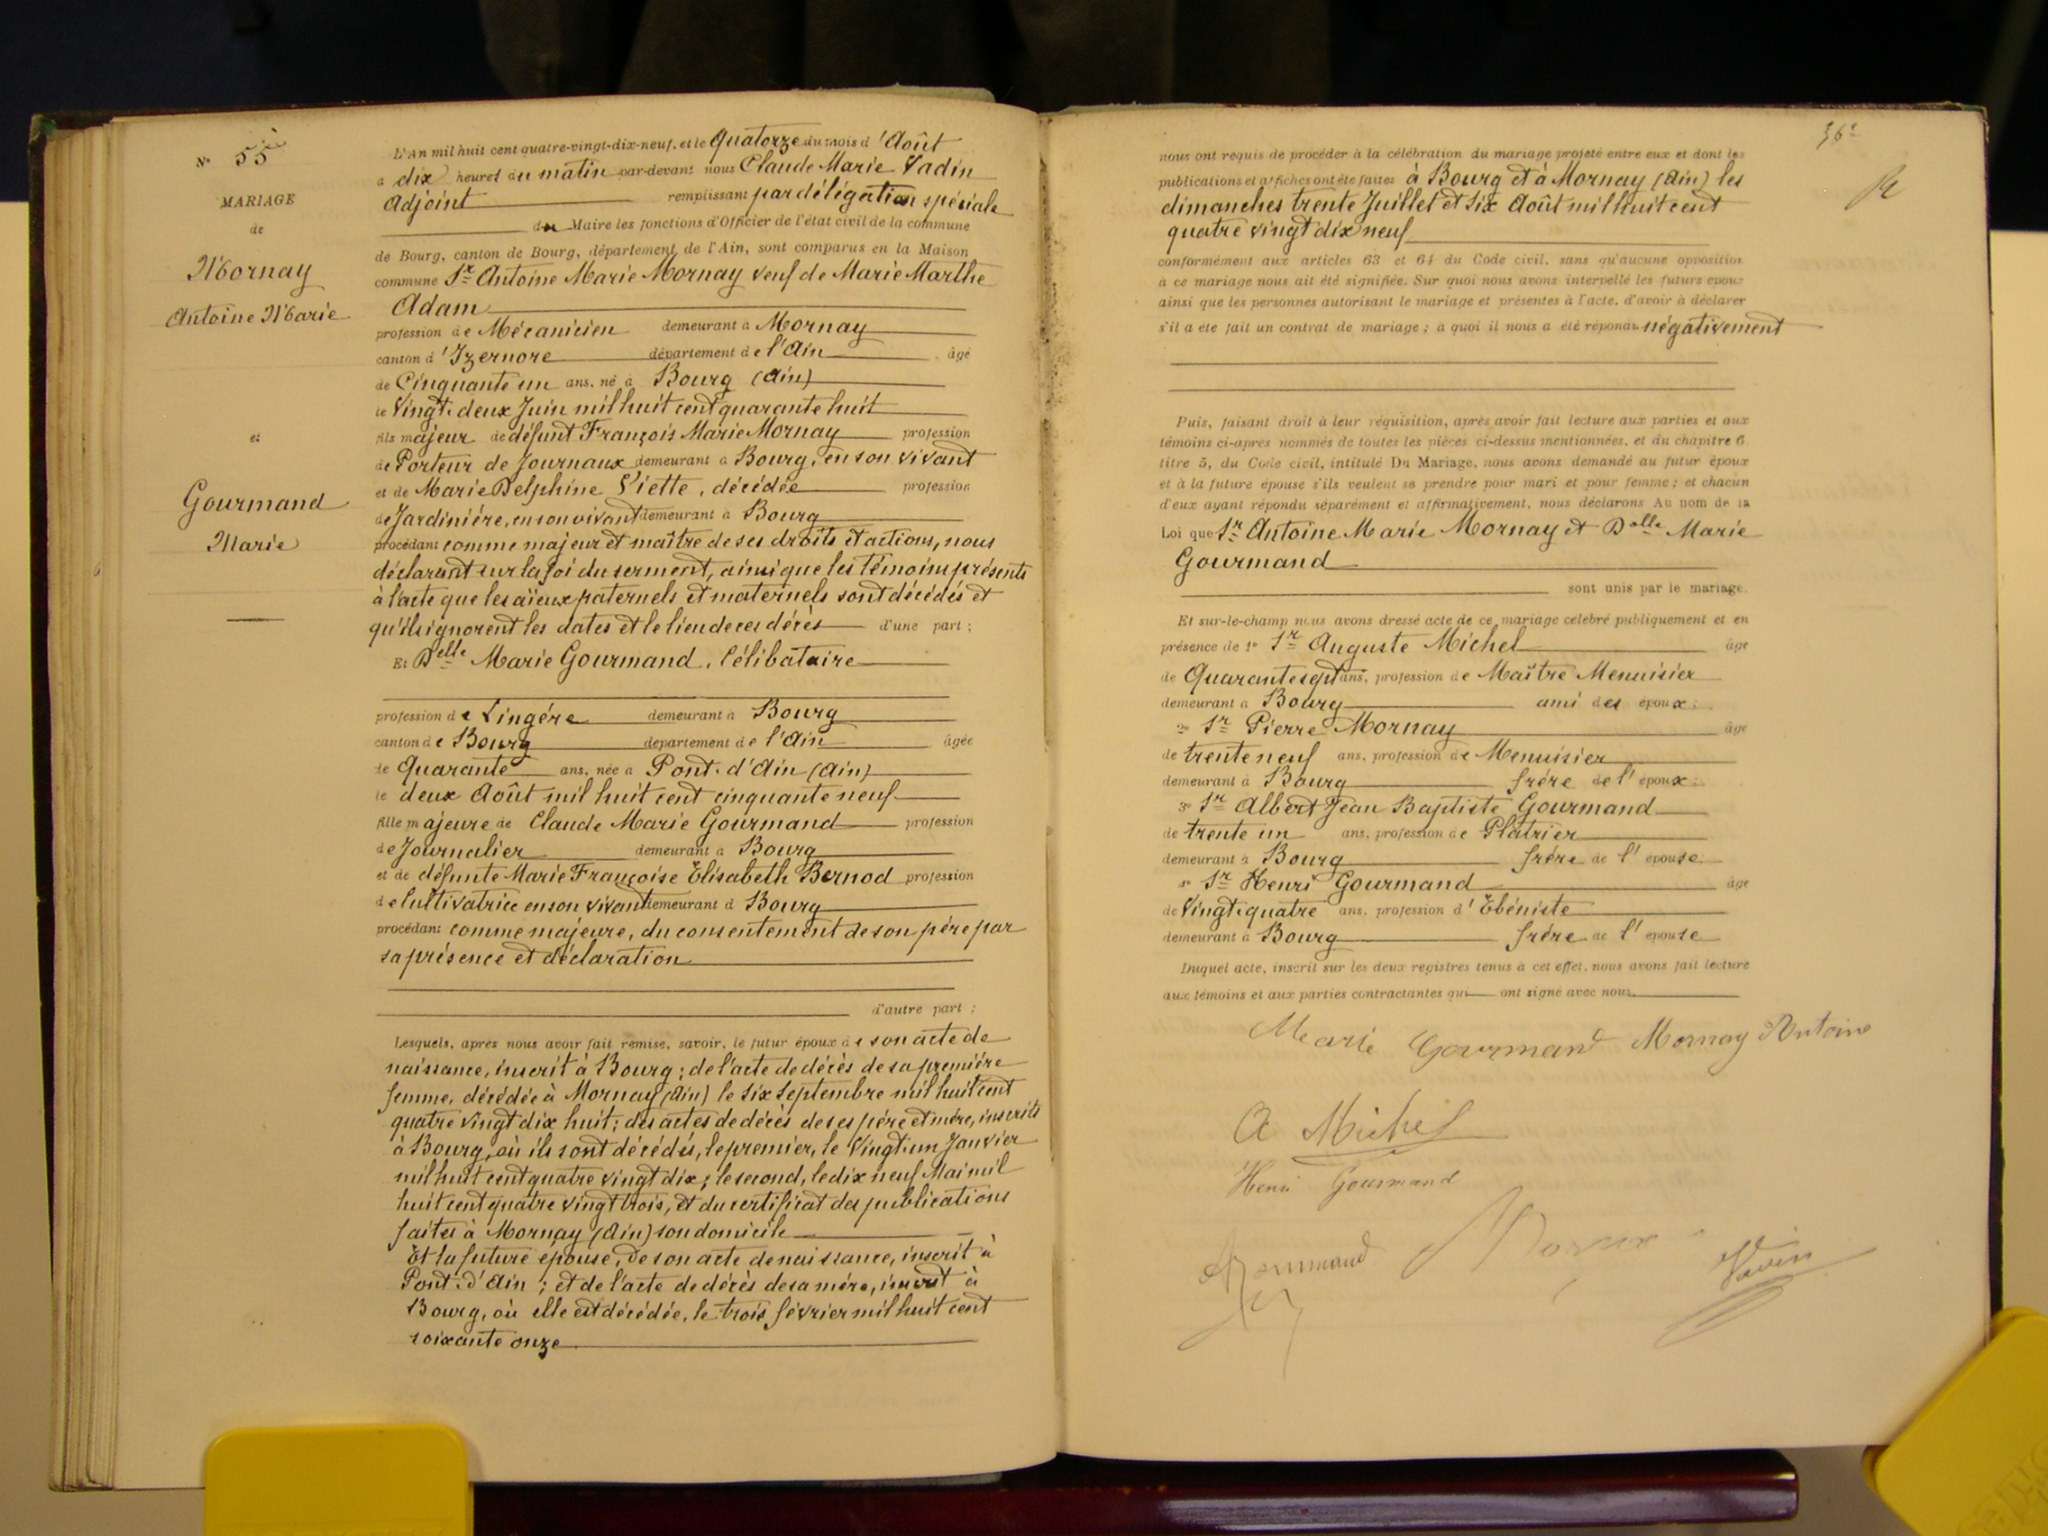 N° 55
MARIAGE
de
Mornay
Antoine Marie
et
Gourmand
Marie
L'An mil huit cent quatre-vingt-dix-neuf, et le Quatorze du mois d'Août
à dix heures du matin par-devant nous Claude Marie Vadin
Adjoint remplissant par délégation spéciale
du Maire les fonctions d'Officier de l'état civil de la commune
de Bourg, canton de Bourg, département de l'Ain, sont comparus en la Maison
commune Sr Antoine Marie Mornay veuf de Marie Marthe
Adam
profession de Mécanicien demeurant à Mornay
canton d'Izernore département de l'Ain âgé
de Cinquante un ans, né à Bourg (Ain)
le Vingt-deux Juin mil huit cent quarante huit
fils majeur de défunt François Marie Mornay profession
de Porteur de Journaux demeurant à Bourg, en son vivant
et de Marie Delphine Viette, décédée profession
de Jardinière, en son vivant demeurant à Bourg
procédant comme majeur et maître de ses droits et actions, nous
déclarant sur la foi du serment, ainsi que les témoins présents
à l'acte que les aïeux paternels et maternels sont décédés et
qu'ils ignorent les dates et le lieu de ces décès d'une part;
Et Delle Marie Gourmand, Célibataire
profession de Lingère demeurant à Bourg
canton de Bourg département de l'Ain âgée
de Quarante ans, née à Pont-d'Ain (Ain)
le deux Août mil huit cent cinquante neuf
fille majeure de Claude Marie Gourmand profession
de Journalier demeurant à Bourg
et de défunte Marie Françoise Elisabeth Bernod profession
de Cultivatrice en son vivant demeurant à Bourg
procédant comme majeure, du consentement de son père par
sa présence et déclaration
d'autre part;
Lesquels, après nous avoir fait remise, savoir, le futur époux de son acte de
naissance, inscrit à Bourg; de l'acte de décès de sa première
femme, décédée à Mornay (Ain) le six septembre mil huit cent
quatre vingt dix huit; des actes de décès de ses père et mère, inscrits
à Bourg, où ils sont décédés, le premier, le Vingt-un Janvier
mil huit cent quatre vingt dix; le second, le dix neuf Mai mil
huit cent quatre vingt trois, et du certificat des publications
faites à Mornay (Ain) son domicile
Et la future épouse, de son acte de naissance, inscrit à
Pont-d'Ain; et de l'acte de décès de sa mère, inscrit à
Bourg, où elle est décédée, le trois février mil huit cent
soixante onze
nous ont requis de procéder à la célébration du mariage projeté entre eux et dont les
publications et affiches ont été faites à Bourg et à Mornay (Ain) les
dimanches trente Juillet et six Août mil huit cent
quatre vingt dix neuf
conformément aux articles 63 et 64 du Code civil, sans qu'aucune opposition
à ce mariage nous ait été signifiée. Sur quoi nous avons interpellé les futurs époux
ainsi que les personnes autorisant le mariage et présentes à l'acte, d'avoir à déclarer
s'il a été fait un contrat de mariage; à quoi il nous a été répondu négativement
Puis, faisant droit à leur réquisition, après avoir fait lecture aux parties et aux
témoins ci-après nommés de toutes les pièces ci-dessus mentionnées, et du chapitre 6
titre 5, du Code civil, intitulé Du Mariage, nous avons demandé au futur époux
et à la future épouse s'ils veulent se prendre pour mari et pour femme; et chacun
d'eux ayant répondu séparément et affirmativement, nous déclarons Au nom de la
Loi que Sr Antoine Marie Mornay et Delle Marie
Gourmand
sont unis par le mariage.
Et sur-le-champ nous avons dressé acte de ce mariage célébré publiquement et en
présence de 1° Sr Auguste Michel âgé
de Quarante sept ans, profession de Maître Menuisier
demeurant à Bourg ami des époux;
2° Sr Pierre Mornay âgé
de trente neuf ans, profession de Menuisier
demeurant à Bourg frère de l'époux;
3° Sr Albert Jean Baptiste Gourmand
de trente un ans, profession de Plâtrier
demeurant à Bourg frère de l'épouse
Sr Henri Gourmand âgé
de Vingt-quatre ans, profession d'Ebéniste
demeurant à Bourg frère de l'épouse
Duquel acte, inscrit sur les deux registres tenus à cet effet, nous avons fait lecture
aux témoins et aux parties contractantes qui ont signé avec nous
Marie Gourmand Mornay Antoine
A Michel
Henri Gourmand
Gourmand
Vadin